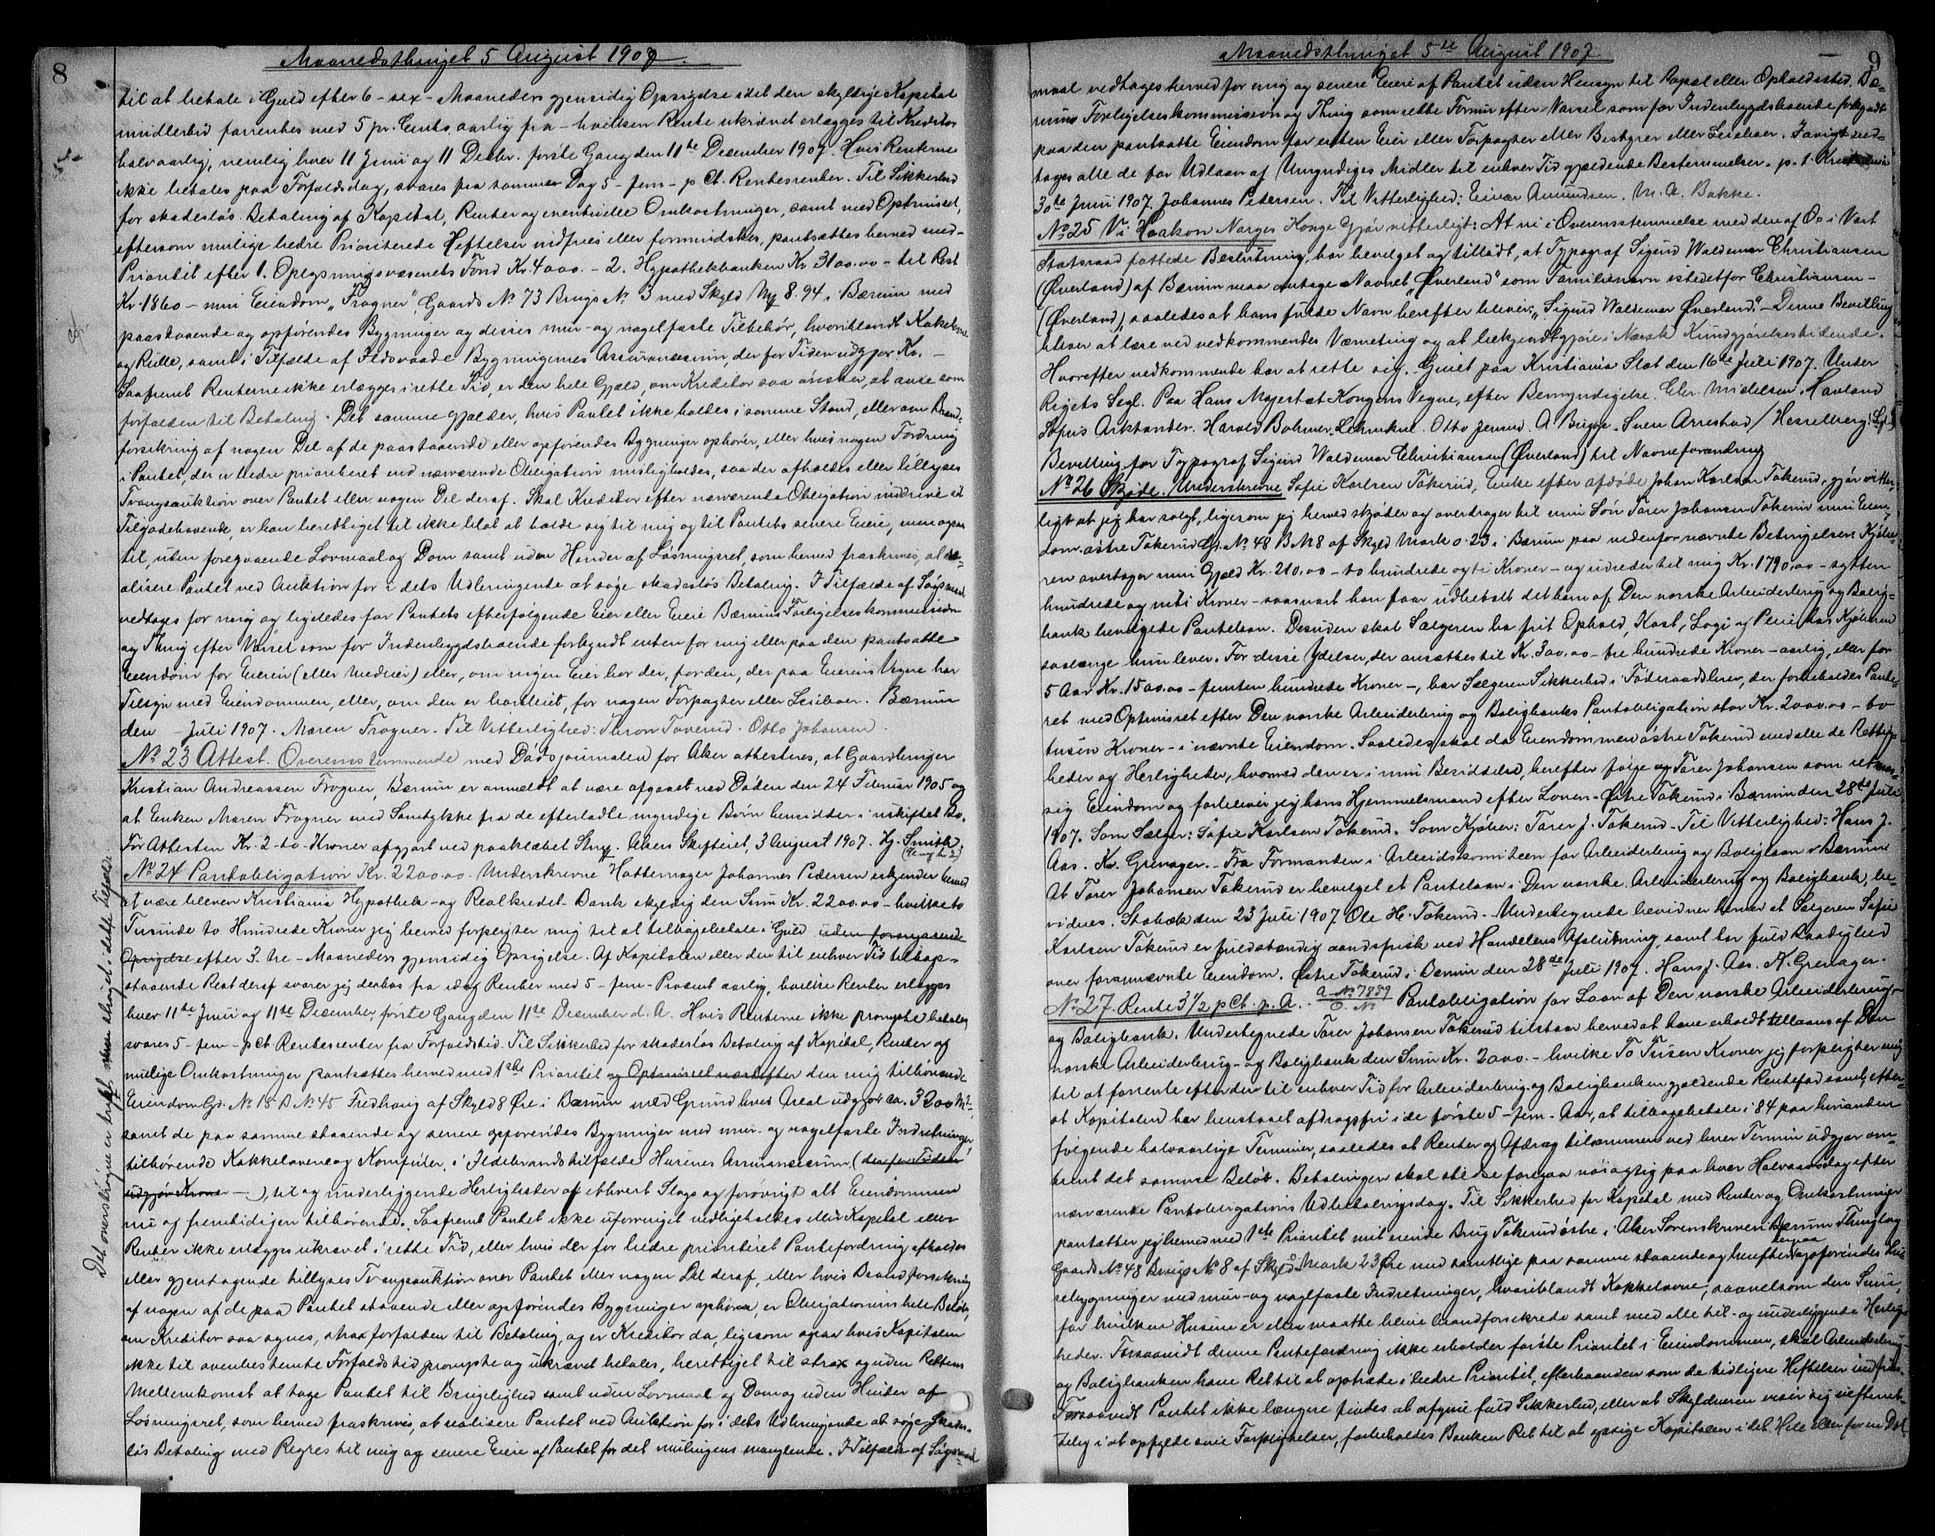 8
Maanedsthinget 5 August 1907.
til at betale i Guld efter 6 - sex - Maaneders gjensidig Opsigelse idet den skyldige Kapital
imidlertid forrentes med 5 pr. Cents aarlig fra - hvilken Rente ukrævet erlægges til Kreditor
halvaarlig, nemlig hver 11 Juni og 11 Decbr. første Gang den 11te December 1907. Hvis Renterne
ikke betales paa Forfaldsdag, svares fra samme Dag 5 - fem - p Ct. Rentesrenter. Til Sikkerhed
for skadesløs Betaling af Kapital, Renter og eventuelle Omkostninger, samt med Oprykningsret,
eftersom mulige bedre Prioriterede Heftelser indfries eller formindskes, pantsættes herved med
Prioritet efter 1. Oplysningsvæsenets Fond Kr. 4000. - 2. Hypothekbanken Kr. 3100.00 - til Rest
Kr. 1860 - min Eiendom "Frogner", Gaards No 73 Brugs No 3 med Skyld Mk 8.94 i Bærum med
paastaaende og opførendes Bygninger og disses mur- og nagelfaste Tilbehør, hvoriblandt Kakelovne
og Rulle, samt i Tilfælde af Ildsvaade Bygningernes Assurancesum, der for Tiden udgjør Kr. -
Saafremt Renterne ikke erlægges i rette Tid, er den hele Gjæld, om Kreditor saa ønsker, at anse som
forfalden til Betaling. Det samme gjælder, hvis Pantet ikke holdes i samme Stand, eller om Brand-
forsikring af nogen Del af de paastaaende eller opførendes Bygninger ophører, eller hvis nogen Fordring
i Pantet, der er bedre prioriteret end nærværende Obligation misligholdes, saa der afholdes eller tillyses
Tvangsauktion over Pantet eller nogen Del deraf. Skal Kreditor efter nærværende Obligation inddrive sit
Tilgodehavende, er han berettiget til ikke blot at holde sig til mig og til Pantets senere Eiere, men ogsaa
til, uden foregaaende Lovmaal og Dom samt uden Hinder af Løsningsret, som herved fraskrives, at re-
alisere Pantet ved Auktion for i dets Udbringende at søge skadesløs Betaling. I Tilfælde af Søgsmaal
vedtages for mig og ligeledes for Pantets efterfølgende Eier eller Eiere Bærums Forligelseskommission
og Thing efter Varsel som for Indenbygdsboende forkyndt enten for mig eller paa den pantsatte
Eiendom for Eieren (eller Medeier) eller, om ingen Eier bor der, for den, der paa Eierens Vegne har
Tilsyn med Eiendommen, eller, om den er bortleiet, for nogen Forpagter eller Leiebær. Bærum
den - Juli 1907. Maren Frogner. Til Vitterlighed: Thron Toverud. Otto Johansen
No 23 Attest. Overensstemmende med Dødsjournalen for Aker attesteres, at Gaardbruger
Kristian Andreassen Frogner, Bærum er anmeldt at være afgaaet ved Døden den 24 Februar 1905 og
at Enken Maren Frogner med Samtykke fra de efterladte myndige Børn hensidder i uskiftet Bo.
For Attesten Kr. 2 - to - Kroner afgjort ved paaklæbet Stmp. Akers Skifteret, 3 August 1907. Hj. Smith
No 24 Pantobligation Kr. 2200.00. Underskrevne Hattemager Johannes Pedersen erkjender herved
at være bleven Kristiania Hypothek- og Realkredit-Bank skyldig den Sum Kr. 2200.00 - hvilke to
Tusinde to Hundrede Kroner jeg herved forpligter mig til at tilbagebetale i Guld uden foregaaende
Opsigelse efter 3. tre - Maaneders gjensidig Opsigelse. Af Kapitalen eller den til enhver Tid tilbage-
staaende Rest deraf svarer jeg derhos fra idag Renter med 5 - fem - Procent aarlig, hvilke Renter erlægges
hver 11te Juni og 11te December, første Gang den 11te December d. A. Hvis Renterne ikke prompte betales,
svares 5 - fem - pCt Rentesrenter fra Forfaldstid. Til Sikkerhed for skadesløs Betaling af Kapital, Renter og
mulige Omkostninger pantsættes herved med 1ste Prioritet og Oprykningsret næst efter den mig tilhørende
Eiendom Gd. No 18 B No 45 Fredhaug af Skyld 8 Øre i Bærum med Grund hvis Areal udgjør ca. 3200 M2
samt de paa samme staaende og senere opførendes Bygninger med mur- og nagelfaste Indretninger,
tilhørende Kakkelovne og Komfurer, i Ildebrandstilfælde Husenes Assurancesum (der for Tiden
udgjør Kroner -), til og underliggende Herligheder af ethvert Slags og forøvrigt alt Eiendommen
nu og fremtidigen tilhørende. Saafremt Pantet ikke uforringet vedligeholdes eller Kapital eller
Renter ikke erlægges ukrævet i rette Tid, eller hvis der for bedre prioriteret Pantefordring afholdes
eller gjentagende tillyses Tvangsauktion over Pantet eller nogen Del deraf, eller hvis Brandforsikring
af nogen af de paa Pantet staaende eller opførendes Bygninger ophører, er Obligationens hele Beløb,
om Kreditor saa agnes, strax forfalden til Betaling, og er Kreditor da, ligesom ogsaa hvis Kapitalen
ikke til ovenbestemte Forfaldstid prompte og ukrævet betales, berettiget til strax og uden Rettens
Mellemkomst at tage Pantet til Brugelighed samt uden Lovmaal og Dom og uden Hinder af
Løsningsret, som herved fraskrives, at realisere Pantet ved Auktion for i dets Udbringende at søge skades-
løs Betaling med Regres til mig og senere Eiere af Pantet for det muligens manglende. I Tilfælde af Søgsmaal
Det overstrøgne er trukket ... i dette Tilfælde.
9
Maanedsthinget 5te August 1907.
maal vedtages herved for mig og senere Eiere af Pantet uden Hensyn til Bopæl eller Opholdssted, Bæ-
rums Forligelseskommission og Thing som rette Forum efter Varsel som for Indenbygdsboende forkyndt
paa den pantsatte Eiendom for enten Eier eller Forpagter eller Bestyrer eller Leieboer. Iøvrigt ved-
tages alle de for Udlaan af Umyndiges Midler til enhver Tid gjældende Bestemmelser. p. t. Kristiania
30te Juni 1907. Johannes Pedersen. Til Vitterlighed: Einar Amundsen. M. A. Bakke.
No 25 Vi Haakon Norges Konge Gjør vitterligt: At vi i Overensstemmelse med den af Os i Vort
Statsraad fattede Beslutning, har bevilget og tilladt, at Typograf Sigurd Waldemar Christiansen
(Øverland) af Bærum maa antage Navnet "Øverland" som Familienavn istedetfor Christiansen -
(Øverland), saaledes at hans fulde Navn herefter bliver: "Sigurd Waldemar Øverland". - Denne Bevilling
bliver at læse ved vedkommendes Værneting og at bekjendtgjøre i Norsk Kundgjørelsestidende.
Hvorefter vedkommende har at rette sig. Givet paa Kristiania Slot den 16de Juli 1907. Under
Rigets Segl. Paa Hans Majestæt Kongens Vegne, efter Bemyndigelse. Chr. Michelsen. Havland
Sofus Arktander. Harald Bothner. Lehmkul. Otto Jensen. A Brigge. Sven Arrestad / Hesselberg. (L.S.)
Bevilling for Typograf Sigurd Waldemar Christiansen (Øverland) til Navneforandring
No 26 Skjøde. Underskrevne Sofie Karlsen Tokerud, Enke efter afdøde Johan Karlsen Tokerud, gjør vitter-
ligt at jeg har solgt, ligesom jeg herved skjøder og overdrager til min Søn Torer Johansen Tokerud min Eien-
dom østre Tokerud G. No 48 B. No 8 af Skyld Mark 0.23 i Bærum paa nedenfor nævnte Betingelser: Kjøbe-
ren overtager min Gjæld Kr. 210.00 - to hundrede og ti Kroner - og udreder til mig Kr. 1790.00 - sytten
hundrede og nitti Kroner - saasnart han faar udbetalt det ham af Den norske Arbeiderbrug og Bolig-
bank bevilgede Pantelaan. Desuden skal Sælgeren ha frit Ophold, Kost, Logi og Pleie hos Kjøberen
saalænge hun lever. For disse Ydelser, der ansættes til Kr. 300.00 - tre hundrede Kroner - aarlig, eller for
5 Aar Kr. 1500.00 - femten hundrede Kroner -, har Sælgeren Sikkerhed i Føderaadsbrev, der forbeholdes Pante-
ret med Oprykningsret efter Den norske Arbeiderbrug og Boligbanks Pantobligation stor Kr. 2000.00 - to
tusen Kroner - i nævnte Eiendom. Saaledes skal da Eiendommen østre Tokerud med alle de Rettig-
heder og Herligheder, hvormed den er i min Besiddelse, herefter følge og Torer Johansen som ret
sig Eiendom og forbliver jeg hans Hjemmelsmand efter Loven. Østre Tokerud i Bærum den 28de Juli
1907. Som Sælger: Sofie Karlsen Tokerud. Som Kjøber: Torer J. Tokerud - Til Vitterlighed: Hans J.
Aas. Kr. Grenager. - Fra Formanden i Arbeidskomiteen for Arbeiderbrug og Boliglaan i Bærum
At Torer Johansen Tokerud er bevilget et Pantelaan i Den norske Arbeiderbrug og Boligbank, be-
vidnes. Stabæk den 23 Juli 1907 Ole H. Tokerud. - Undertegnede bevidner herved at Sælgeren Sofie
Karlsen Tokerud er fuldstændig aandsfrisk ved Handelens Afslutning, samt har fuld Raadighed
over forannævnte Eiendom. Østre Tokerud i Bærum den 28de Juli 1907. Hans J. Aas. K. Grenager.
No 27. Rente 3 1/2 pCt. p. A. A. No 7889 Pantobligation for Laan af Den norske Arbeiderbrug-
og Boligbank. Undertegnede Torer Johansen Tokerud tilstaar herved at have erholdt tillaans af Den
norske Arbeiderbrug- og Boligbank den Sum Kr. 2000. - hvilke To Tusen Kroner jeg forpligter mig
til at forrente efter den til enhver Tid for Arbeiderbrug- og Boligbanken gjældende Rentefod samt, efter
at Kapitalen har henstaaet afdragsfri i de første 5 - fem - Aar, at tilbagebetale i 84 paa hinanden
følgende halvaarlige Terminer, saaledes at Renter og Afdrag tilsammen ved hver Termin udgjør om-
trent det samme Beløb. Betalinger skal ske foregaa nøiagtig paa hver Halvaarsdag efter
nærværende Pantobligations Udbetalingsdag. Til Sikkerhed for Kapital med Renter og Omkostninger
pantsætter jeg herved med 1ste Prioritet mit eiende Brug Tokerud østre i Aker Sorenskriveri Bærum Thinglag
Gaards No 48 Brugs No 8 af Skyld Mark 0.23 Øre med samtlige paa samme staaende og herefter derpaa opførendes Hu-
sebygninger med mur- og nagelfaste Indretninger, hvoriblandt Kakkelovne, saavelsom den Sum,
for hvilken Husene er eller maatte blive brandforsikrede samt med alle til- og underliggende Herlig-
heder. Forsaavidt denne Pantefordring ikke erholder første Prioritet i Eiendommen, skal Arbeiderbrug-
og Boligbanken have Ret til at optræde i bedre Prioritet, efterhaanden som de tidligere Heftelser indfries.
Forsaavidt Pantet ikke længere findes at afgive fuld Sikkerhed, eller at Skyldneren viser sig uefterret-
telig i at opfylde sine Forpligtelser, forbeholdes Banken Ret til at opsige Kapitalen i det Hele eller for en Del